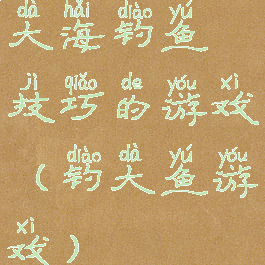 dà hǎi diào yú
大海钓鱼
jì qiǎo de yóu xì
技巧的游戏
diào dà yú yóu
（钓大鱼游
xì
戏）